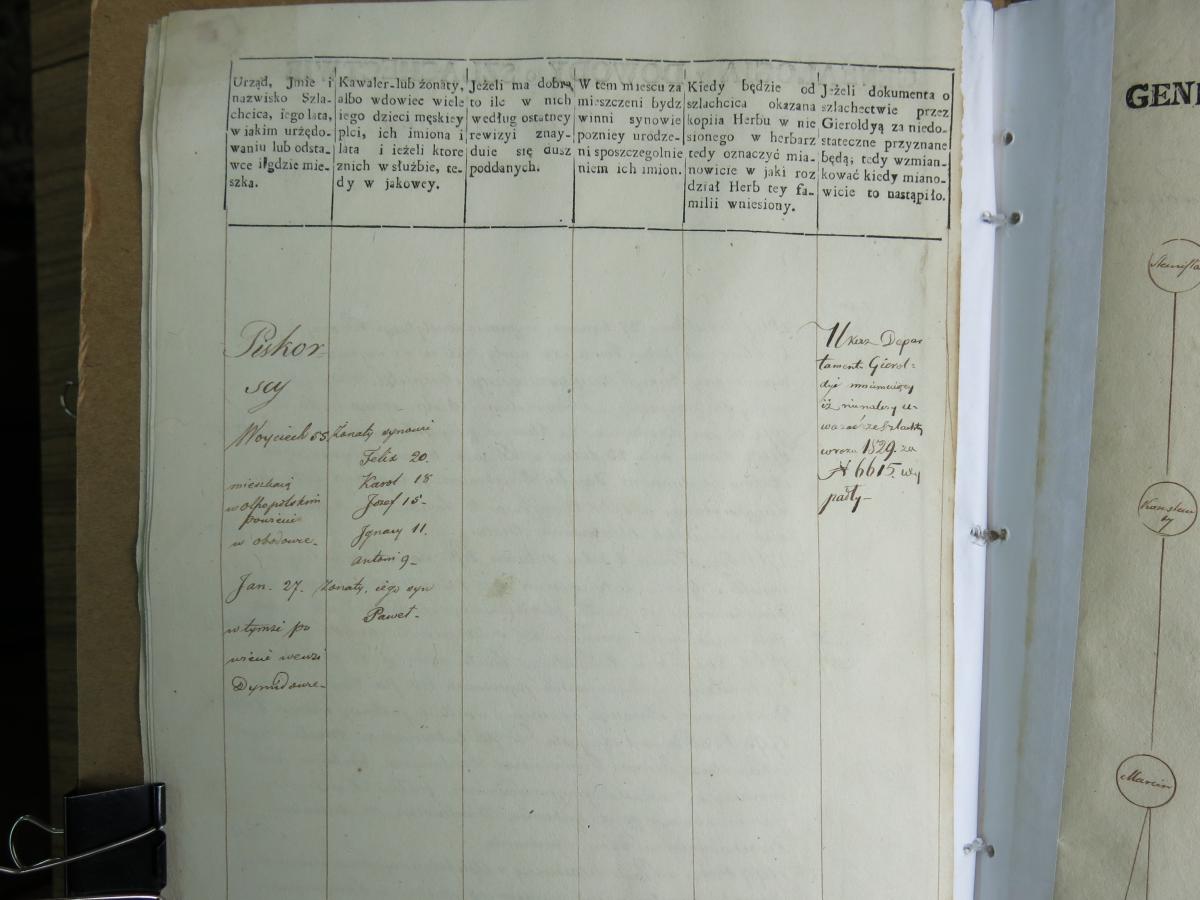 Urząd, Jmie i
nazwisko Szla-
chcica, iego lata,
w iakim urzędo-
waniu lub odsta-
wce i gdzie mie-
szka.
Kawaler lub żonaty,
albo wdowiec wiele
iego dzieci męskiey
płci, ich imiona i
lata i ieżeli ktore
znich w służbie, te-
dy w jakowey.
Jeżeli ma dobra
to ile w nich
według ostatney
rewizyi znay-
duie się dusz
poddanych.
W tem miescu za
mieszczeni bydz
winni synowie
pozniey urodze-
ni sposzczegolnie
niem ich imion.
Kiedy będzie od
szlachcica okazana
kopiia Herbu w nie
sionego w herbarz
tedy oznaczyć mia-
nowicie w jaki roz
dział Herb tey fa-
milii wniesiony.
Jeżeli dokumenta o
szlachectwie przez
Gieroldyą za niedo-
stateczne przyznane
będą; tedy wzmian-
kować kiedy miano-
wicie to nastąpiło.
Piskor
scy
Woyciech 55.
mieszkaią
w olhopolskim
powiecie
w obodowce-
Jan. 27.
w tymże po
wiecie wewsi
Dymidowce-
Zonaty synowi
Felix 20.
Karol 18
Jozef 15-
Jgnacy 11.
Antoni 9-
Zonaty, iego syn
Paweł-
Ukaz Depar
tament Gierol-
dyi
iż nienalezy u-
wazać ze szlachty
wroku 1829. za
№ 6615. wy
padły-
GENE
Stanisła
Konstan
ty
Marcin